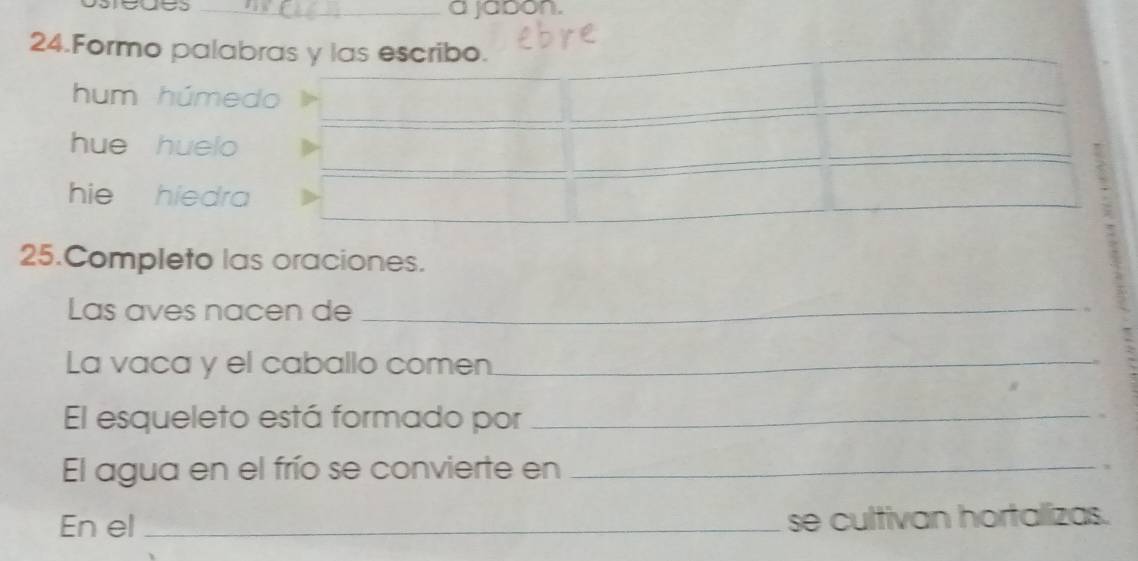 a jabón.
ebre
24.Formo palabras y las escribo.
hum húmedo
hue huelo
hie hiedra
25.Completo las oraciones.
Las aves nacen de .
La vaca y el caballo comen .
El esqueleto está formado por .
El agua en el frío se convierte en .
En el se cultivan hortalizas.